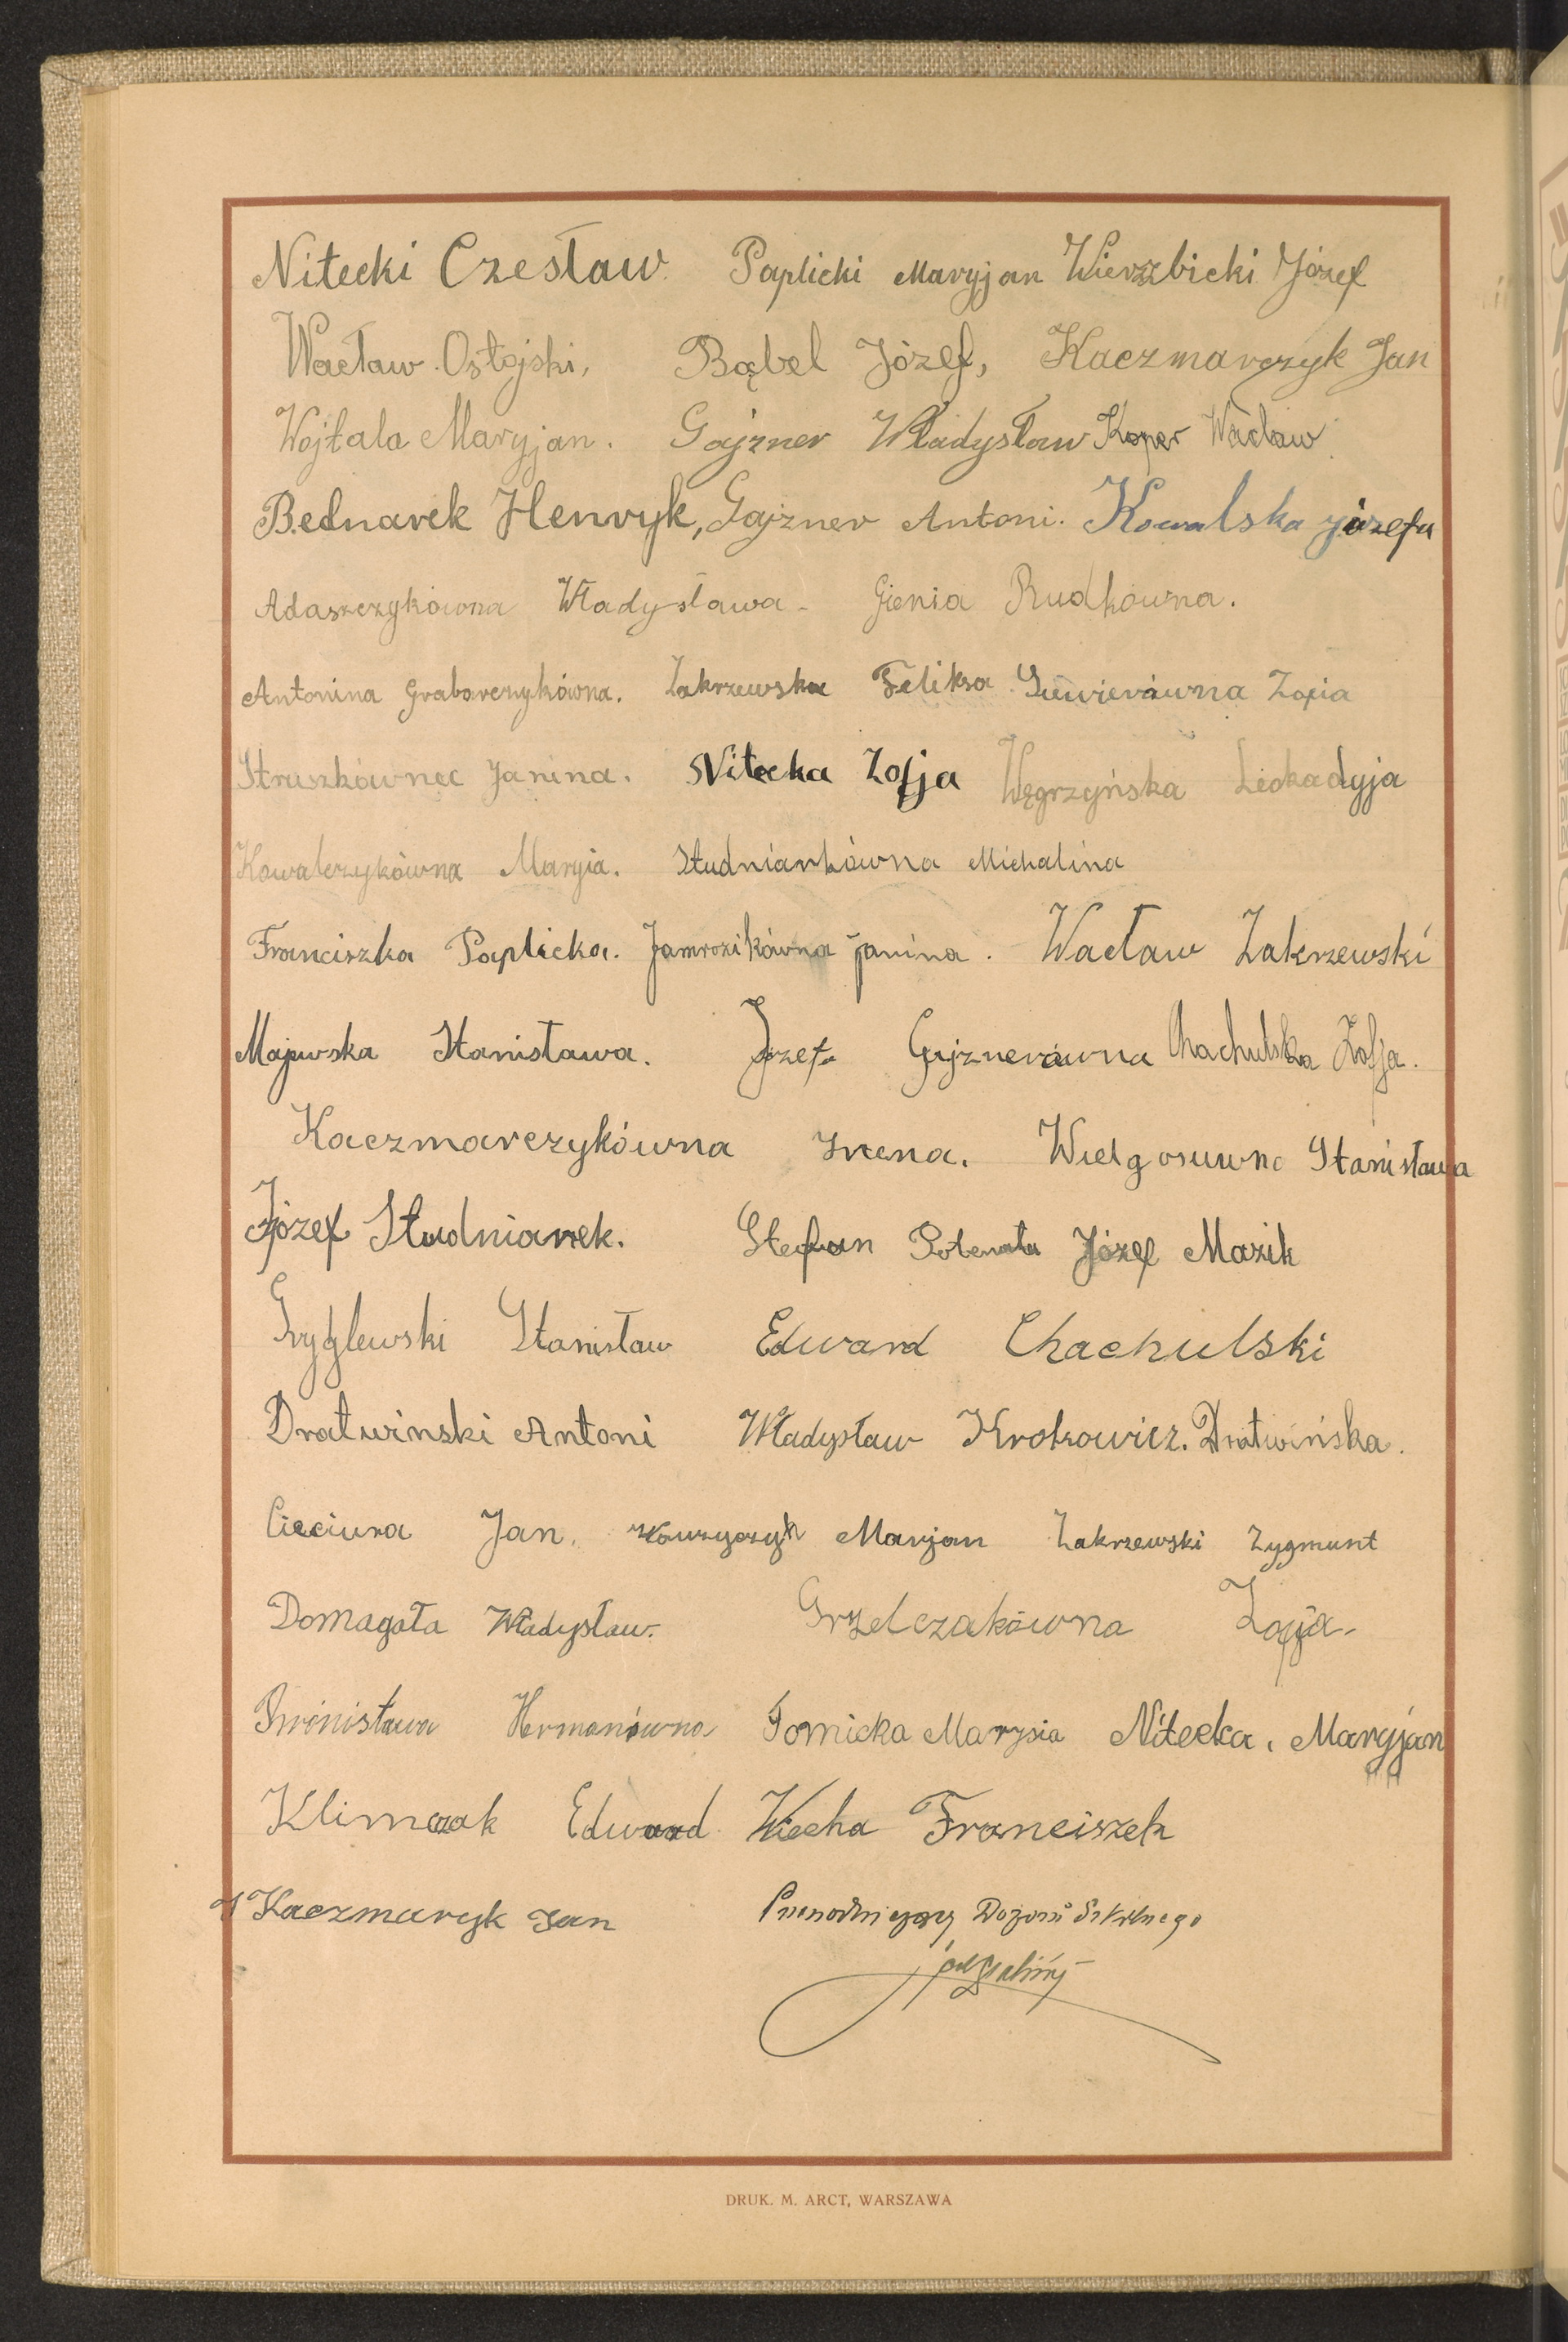 Nitecki Czesław Paplicki Maryjan Wierzbicki Józef
Wacław Ostojski, Bąbel Józef, Kaczmarczyk Jan
Wojtala Maryjan. Gajzner Władysław Koper Wacław
Bednarek Henryk, Gajzner Antoni. Kowalska józefa
Adaszczykówna Władysława. Gienia Rudkówna.
Antonina Graborczykówna. Zakrzewska Feliksa Zofia
Janina. Nitecka Zofja Węgrzyńska Leokadyja
Kowalczykówna Maryia. Studniarkówna Michalina
Franciszka Paplicka. Jamrozikówna janina. Wacław Zakrzewski
Majewska Stanisława. Józefa Gajznerówna Chachulska Zofja.
Kaczmarczykówna Irena. Stanisława
Józef Studniarek. Stefan Józef Mazik
Gryglewski Stanisław Edward Chachulski
Dratwinski Antoni Władysław Krotrowicz. Dratwińska.
Cieciura Jan. Marjan Zakrzewski Zygmunt
Domagała Władysław. Grzelczakówna Zofja.
Bronisława Hermanówna Tomicka Marysia Nitecka. Maryjan
Klimczak Edward Wiecha Franciszek
Kaczmaryk Jan Przewodniczący Dozoru Szkolnego
DRUK. M. ARCT, WARSZAWA